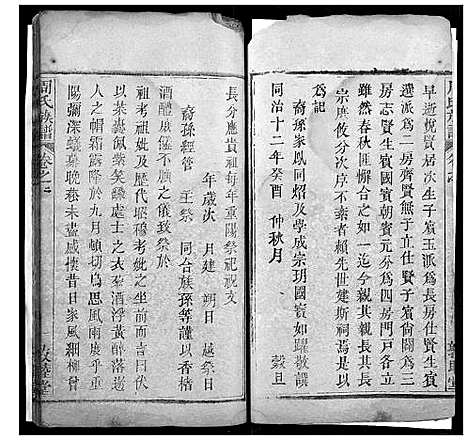 早逝貺賢居次生子賓玉派為長房仕賢生賓
選派為一房齊賢無子立仕賢子嘗關為三
房志賢生國賓朝賓元分為四房門戶各立
雖然春秋匪懈合之如一迄今親其親長其長
宗庶以次序不紊者賴先世建斯祠焉是以
為記
裔孫家鳳同炤及學成宗玥國賓如躍敬譔
同治十二年癸酉 仲秋月 穀旦
周氏族譜 卷之十
長分應貴祖每年重陽祭祀祝文
年歲次 月建 朔日 越祭日
裔孫經管 主祭 同合族孫等謹以香楮
酒醴風儀不腆之儀致祭於
祖考祖妣及歷代昭穆考妣之坐前而言曰伏
以茱萸佩紫英囊處士之衣壺酒淨黃醉落遊
人之帽霜露降於九月頓切烏思風雨屢乎重
陽彌深蟻慕晚巷未盡感懷昔日家風細柳曾
敦睦堂